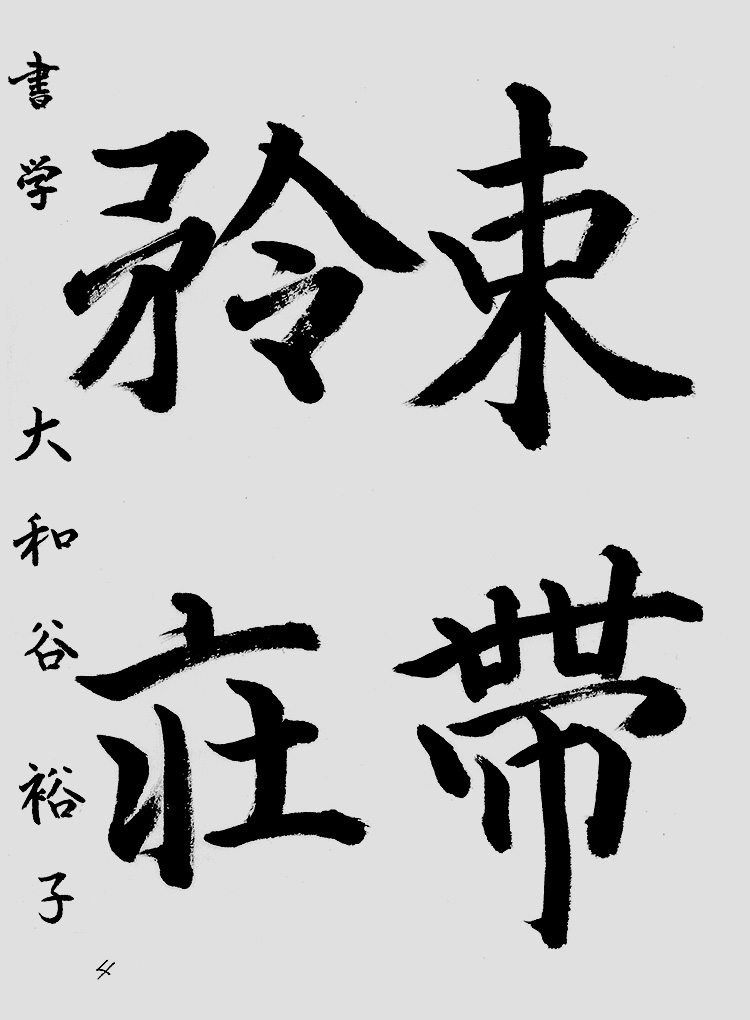 束帯
矜荘
書学 大和谷 裕子
4